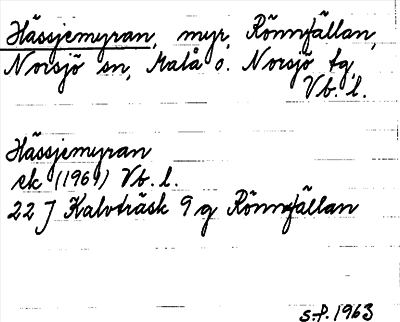 Hässjemyran, myr, Rönnfällan,
Norsjö sn, Malå o. Norsjö tg,
Vb. l.
Hässjemyran
ek (1961) Vb. l.
22 J Kalvträsk 9 g Rönnfällan
s.f. 1963